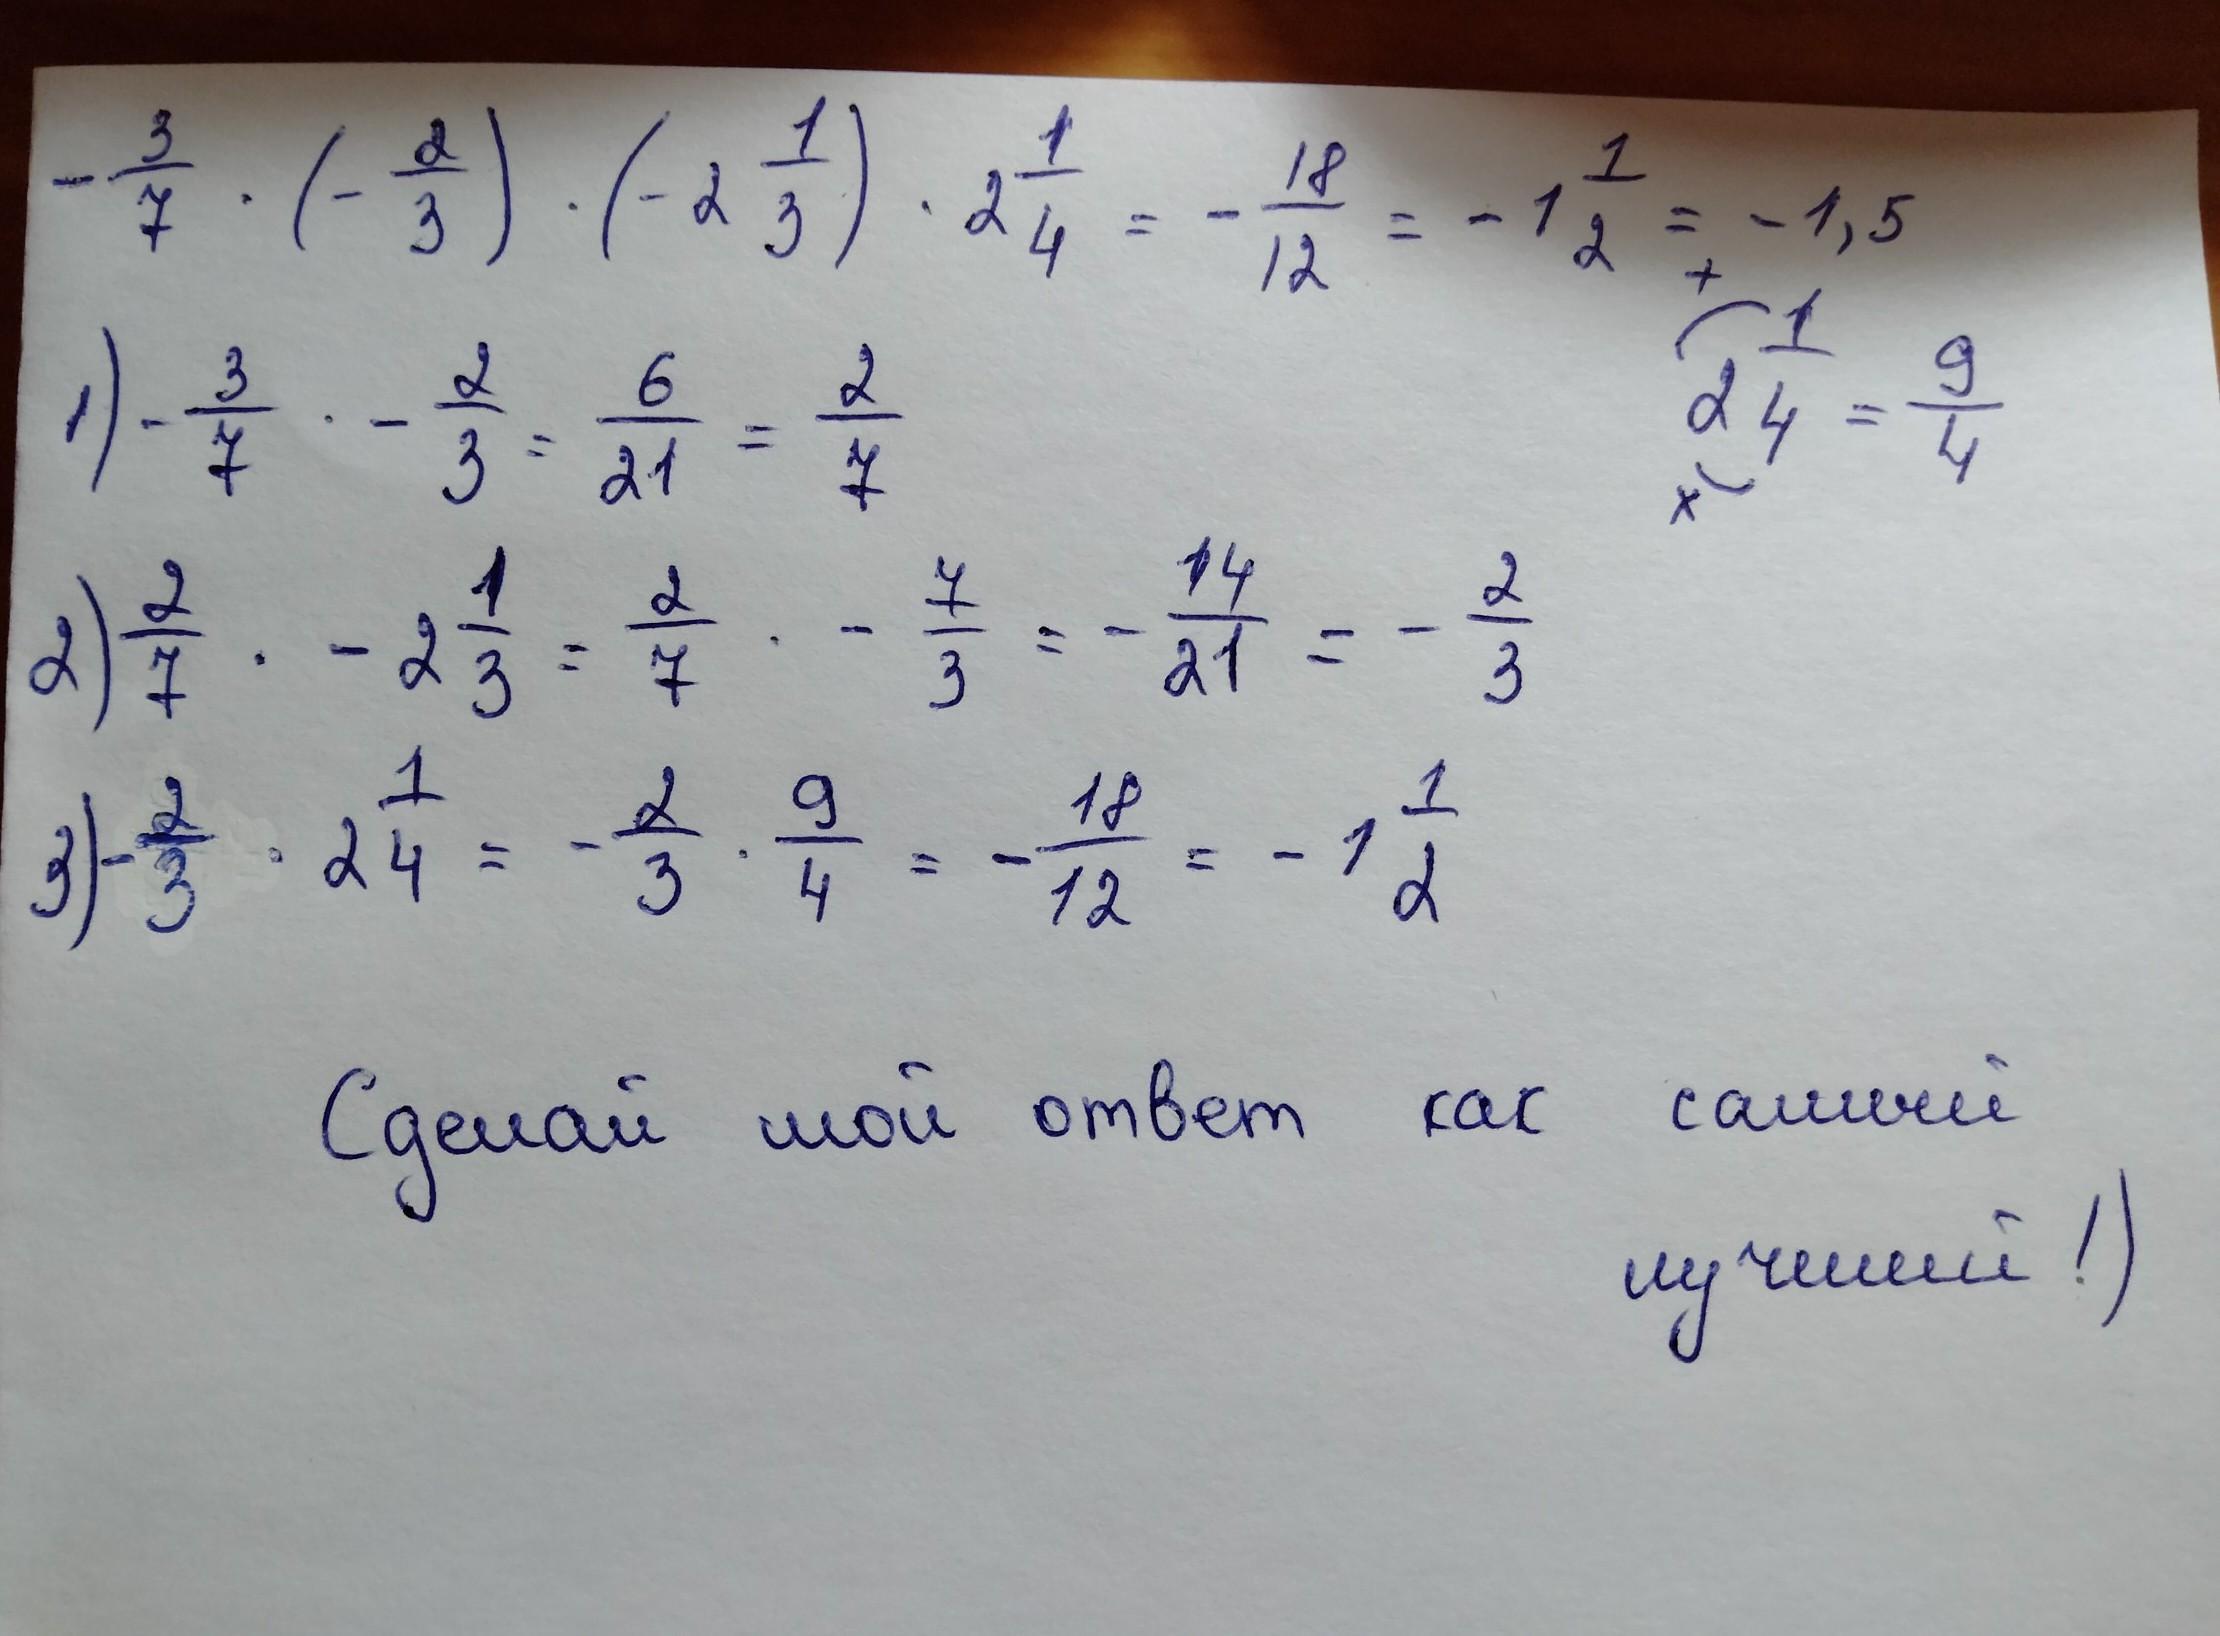 -3/7 · (-2/3) · (-2 1/3) · 2 1/4 = -18/12 = -1 1/2 = -1,5
+
2 1/4 = 9/4
x
1) -3/7 · -2/3 = 6/21 = 2/7
2) 2/7 · -2 1/3 = 2/7 · -7/3 = -14/21 = -2/3
3) -2/3 · 2 1/4 = -2/3 · 9/4 = -18/12 = -1 1/2
Сделай мой ответ как самый
лучший!)